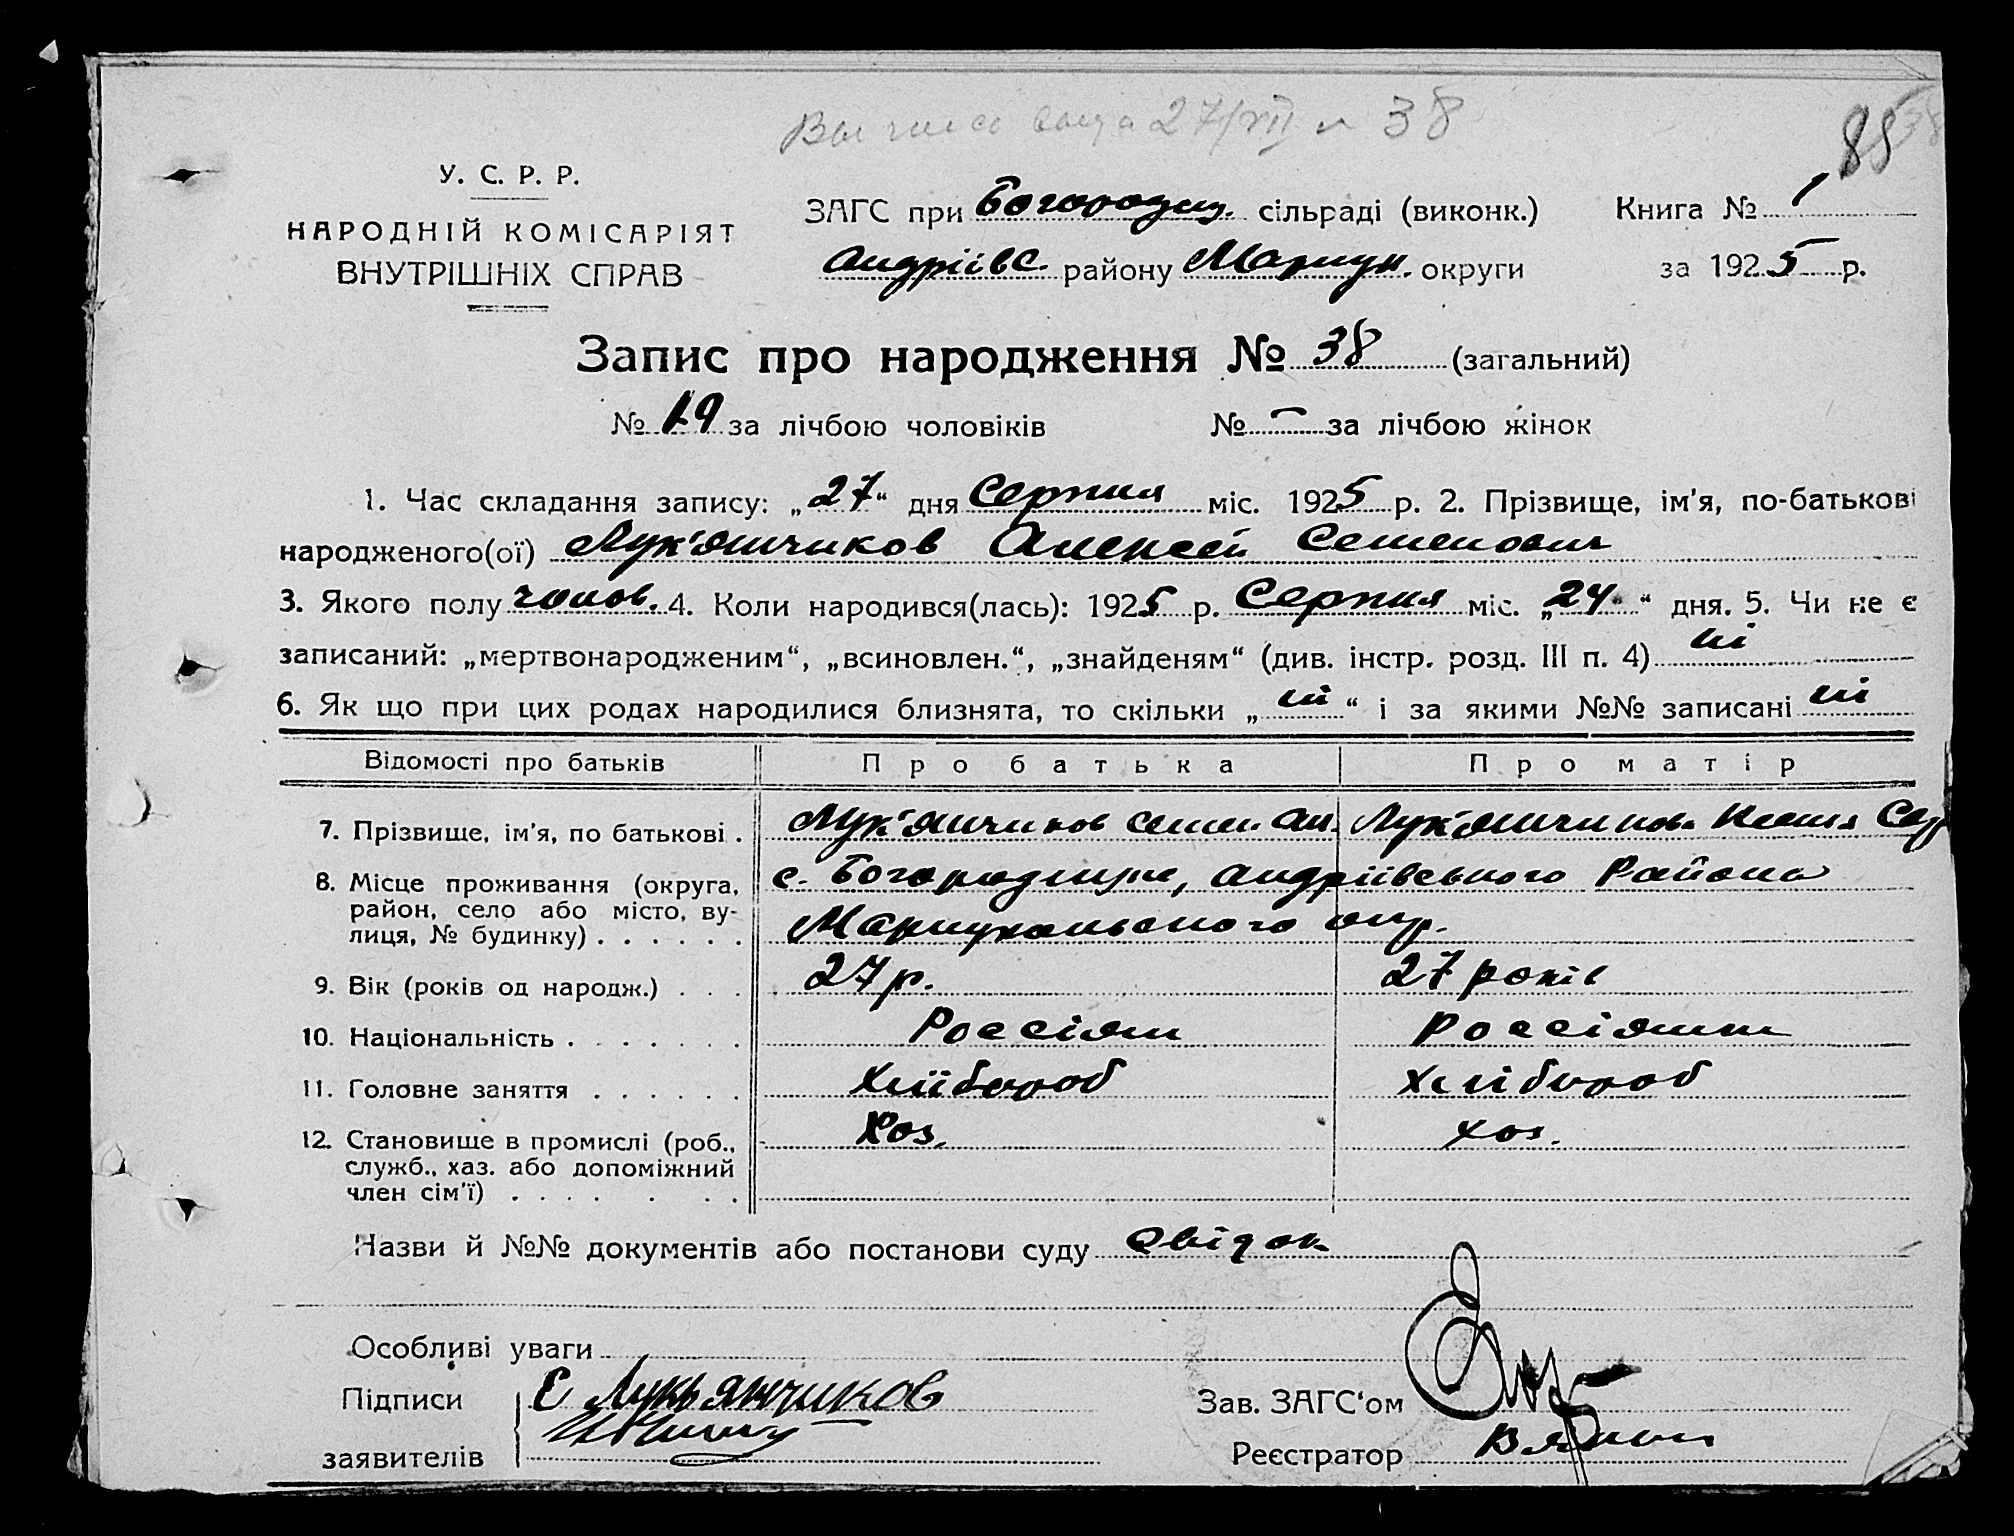 27/VII № 38
85
У. С. Р. Р.
НАРОДНІЙ КОМІСАРІЯТ
ВНУТРІШНІХ СПРАВ
ЗАГС при Богородиц. сільраді (виконк.) Книга № 1
Андріївс. району Мариуп. округи за 1925 р.
Запис про народження № 38 (загальний)
№ 19 за лічбою чоловіків № — за лічбою жінок
1. Час складання запису: „27“ дня Серпня міс. 1925 р. 2. Прізвище, ім'я, по-батькові
народженого(ої) Лук'янчиков Алексей Семенович
3. Якого полу чолов. 4. Коли народився(лась): 1925 р. Серпня міс. „24“ дня. 5. Чи не є
записаний: „мертвонародженим“, „всиновлен.“, „знайденям“ (див. інстр. розд. III п. 4) ні
6. Як що при цих родах народилися близнята, то скільки „ні“ і за якими №№ записані ні
Відомості про батьків Про батька Про матір
7. Прізвище, ім'я, по батькові . Лук'янчиков Семен Ан. Лук'янчикова Ксения
8. Місце проживання (округа, с. Богородицне, Андріївського Района
район, село або місто, ву-
лиця, № будинку) . . . . . . Мариупольского окр.
9. Вік (років од народж.) . . . 27 р. 27 років
10. Національність . . . . . . . Россіян Россіянин
11. Головне заняття . . . . . . Хлібороб Хлібороб
12. Становище в промислі (роб., Хоз. хоз.
служб., хаз. або допоміжний
член сім'ї) . . . . . . .
Назви й №№ документів або постанови суду Свідок
Особливі уваги
Підписи Є Лукьянчиков Зав. ЗАГС'ом
заявителів Реєстратор